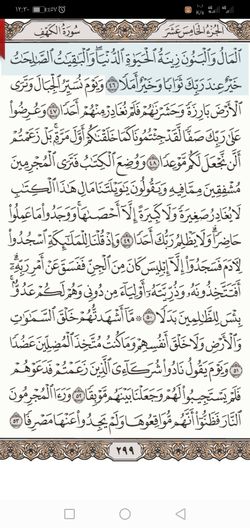 ١٢:٣٠
٪٤٧
سُورَةُ الكَهْفِ
الجُزْءُ الخَامِسَ عَشَرَ
الْمَالُ وَالْبَنُونَ زِينَةُ الْحَيَوٰةِ الدُّنْيَا وَالْبَٰقِيَٰتُ الصَّٰلِحَٰتُ
خَيْرٌ عِندَ رَبِّكَ ثَوَابًا وَخَيْرٌ أَمَلًا ٤٦ وَيَوْمَ نُسَيِّرُ الْجِبَالَ وَتَرَى
الْأَرْضَ بَارِزَةً وَحَشَرْنَٰهُمْ فَلَمْ نُغَادِرْ مِنْهُمْ أَحَدًا ٤٧ وَعُرِضُوا
عَلَىٰ رَبِّكَ صَفًّا لَّقَدْ جِئْتُمُونَا كَمَا خَلَقْنَٰكُمْ أَوَّلَ مَرَّةٍ بَلْ زَعَمْتُمْ
أَلَّن نَّجْعَلَ لَكُم مَّوْعِدًا ٤٨ وَوُضِعَ الْكِتَٰبُ فَتَرَى الْمُجْرِمِينَ
مُشْفِقِينَ مِمَّا فِيهِ وَيَقُولُونَ يَٰوَيْلَتَنَا مَالِ هَٰذَا الْكِتَٰبِ
لَا يُغَادِرُ صَغِيرَةً وَلَا كَبِيرَةً إِلَّا أَحْصَىٰهَا وَوَجَدُوا مَا عَمِلُوا
حَاضِرًا وَلَا يَظْلِمُ رَبُّكَ أَحَدًا ٤٩ وَإِذْ قُلْنَا لِلْمَلَٰٓئِكَةِ اسْجُدُوا
لِآدَمَ فَسَجَدُوا إِلَّا إِبْلِيسَ كَانَ مِنَ الْجِنِّ فَفَسَقَ عَنْ أَمْرِ رَبِّهِ
أَفَتَتَّخِذُونَهُ وَذُرِّيَّتَهُ أَوْلِيَآءَ مِن دُونِي وَهُمْ لَكُمْ عَدُوٌّ
بِئْسَ لِلظَّٰلِمِينَ بَدَلًا ٥٠ مَّا أَشْهَدتُّهُمْ خَلْقَ السَّمَٰوَٰتِ
وَالْأَرْضِ وَلَا خَلْقَ أَنفُسِهِمْ وَمَا كُنتُ مُتَّخِذَ الْمُضِلِّينَ عَضُدًا
٥١ وَيَوْمَ يَقُولُ نَادُوا شُرَكَآءِيَ الَّذِينَ زَعَمْتُمْ فَدَعَوْهُمْ
فَلَمْ يَسْتَجِيبُوا لَهُمْ وَجَعَلْنَا بَيْنَهُم مَّوْبِقًا ٥٢ وَرَءَا الْمُجْرِمُونَ
النَّارَ فَظَنُّوا أَنَّهُم مُّوَاقِعُوهَا وَلَمْ يَجِدُوا عَنْهَا مَصْرِفًا ٥٣
٢٩٩